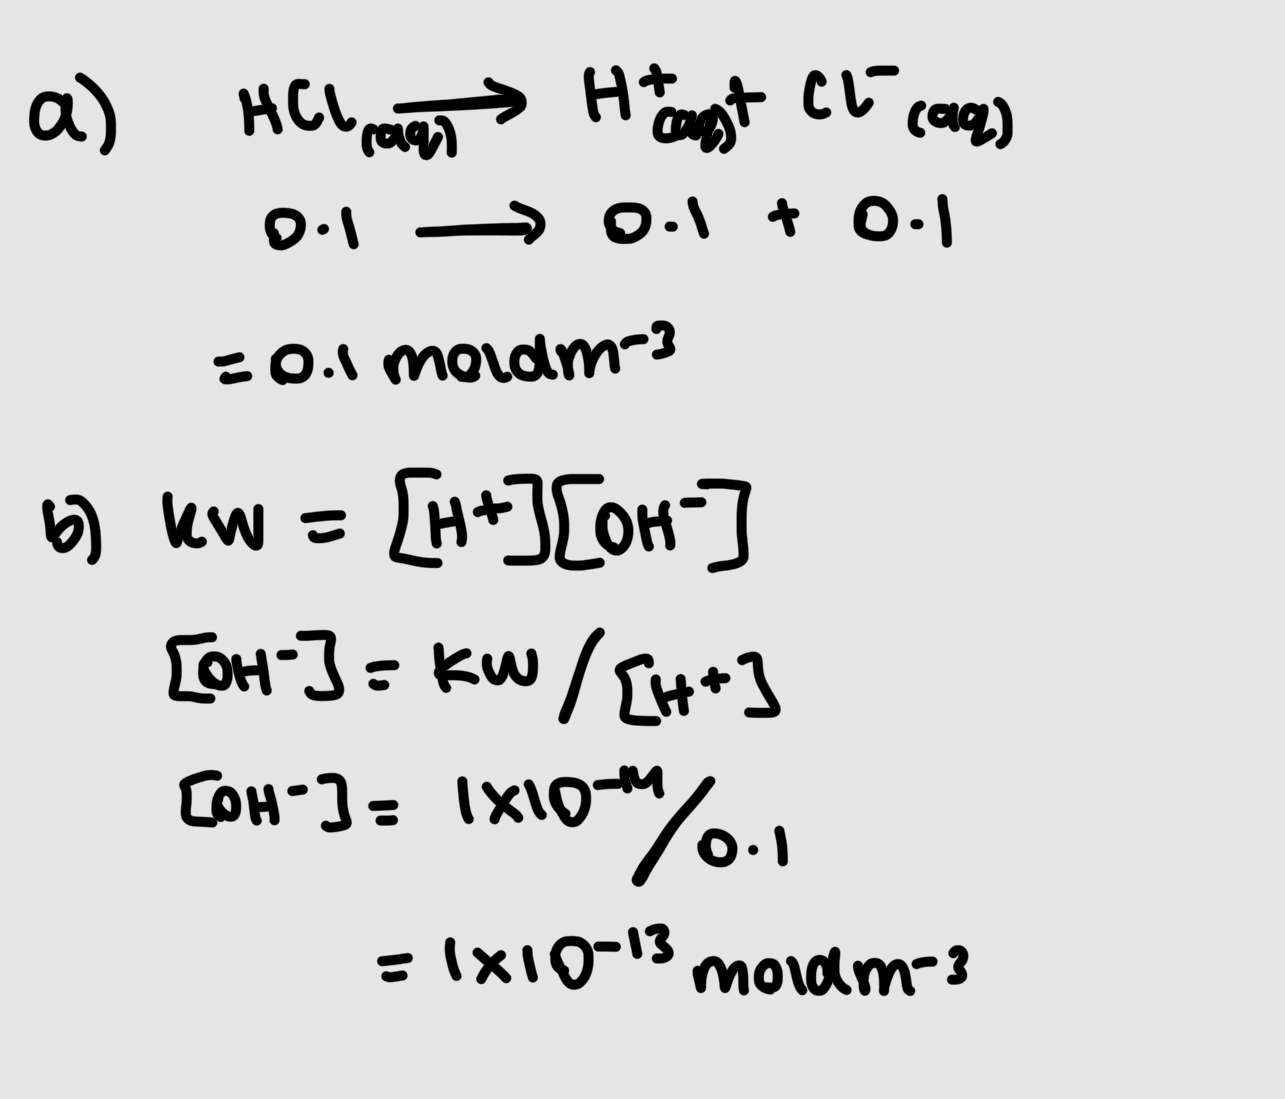 a) HCl(aq) → H⁺(aq) + Cl⁻(aq)
0.1 → 0.1 + 0.1
= 0.1 moldm⁻³
b) kw = [H⁺][OH⁻]
[OH⁻] = kw / [H⁺]
[OH⁻] = 1x10⁻¹⁴ / 0.1
= 1x10⁻¹³ moldm⁻³